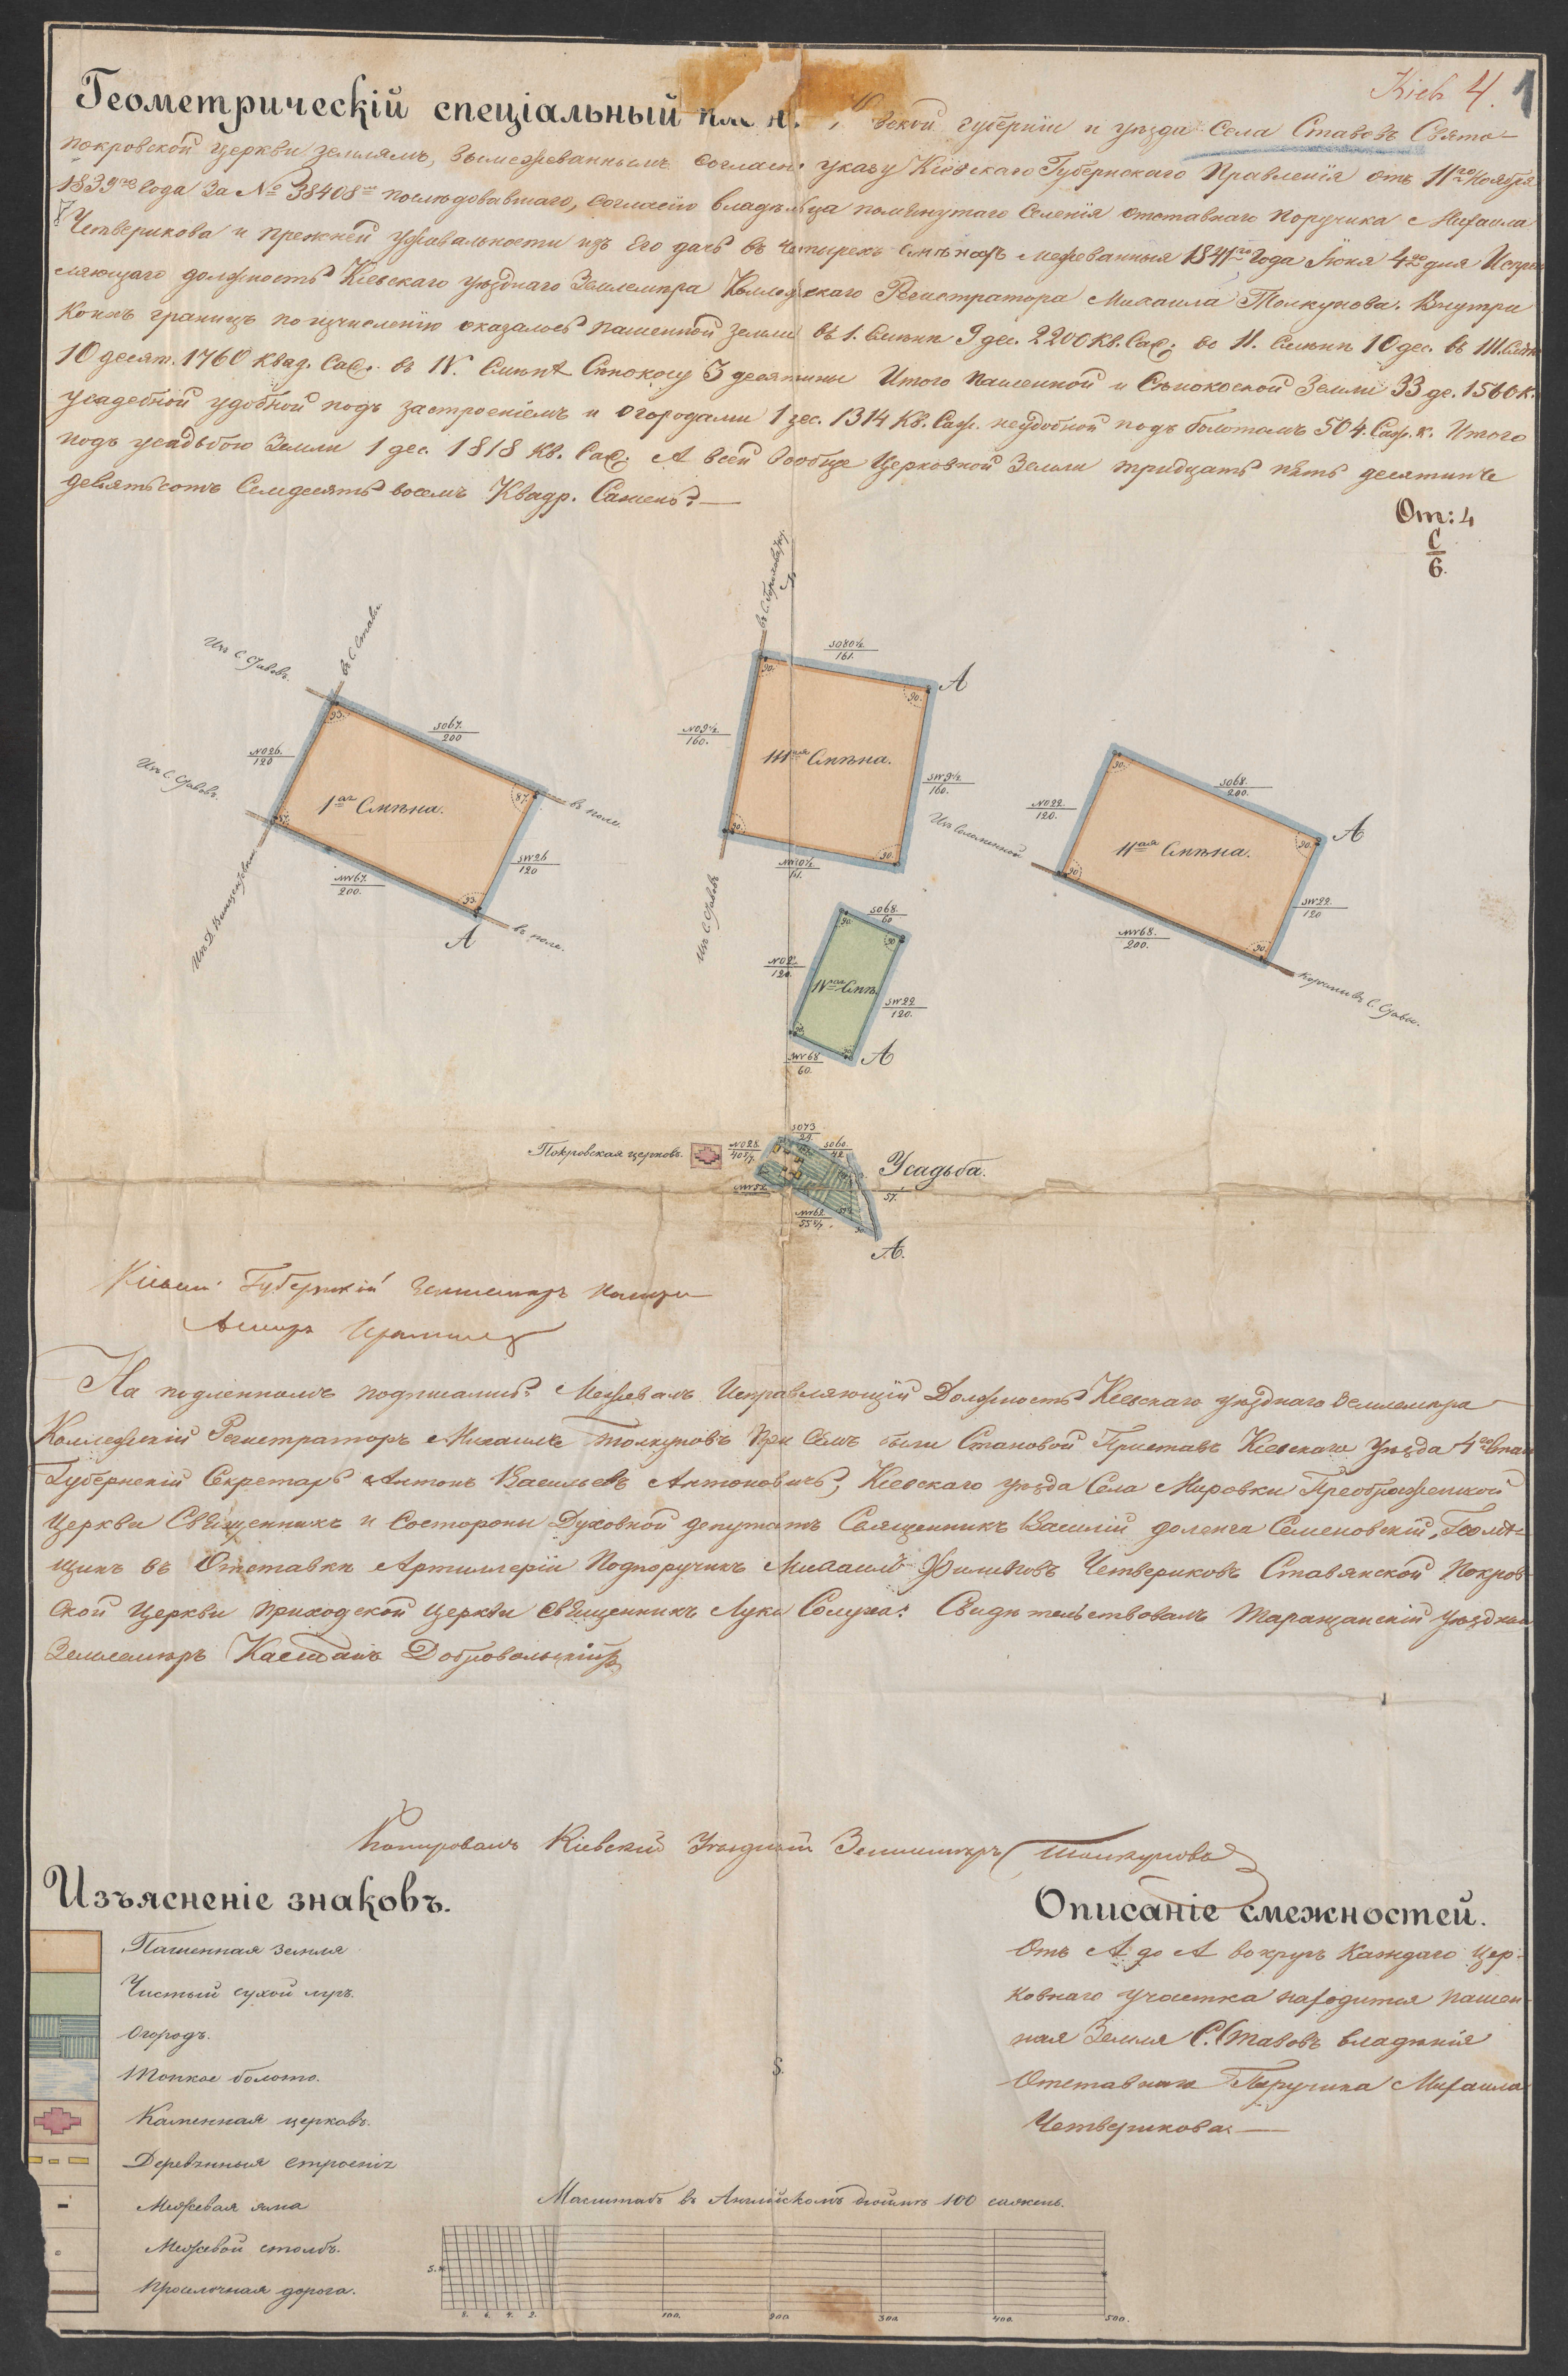 Kieb 4. 1
Геометрическій спеціальный план. вской губерніи и уѣзда Села Ставовъ Свято-
покровской церкви землямъ, вымежеваннымъ согласно указу Кіевскаго Губернскаго Правленія отъ 11го Ноября
1839го года за № 38408м последовавшаго, согласію владѣльца помянутаго селенія отставнаго поручика Михаила
Четверикова и прежней уживальности изъ его дачъ въ четырехъ смѣнахъ межеванныя 1841го года Іюня 4го дня Испра
вляющаго должность Кіевскаго уѣзднаго Землемѣра Коллежскаго Регистратора Михаила Толкунова. Внутри
коихъ границъ по изчисленію оказалось пашенной земли въ 1. Смѣнѣ 9 дес. 2200 кв. Саж. во II. Смѣнѣ 10 дес. въ III. Смѣн
10 десят. 1760 квад. Саж. въ IV. Смѣнѣ Сѣнокосу 3 десятины Итого пашенной и Сѣнокосной Земли 33 де. 1560 к.
усадебной удобной подъ застроеніемъ и огородами 1 дес. 1314 Кв. Саж. неудобной подъ болотомъ 504. Саж. к. Итого
подъ усадьбою Земли 1 дес. 1818 кв. Саж. А всей вообще Церковной Земли тридцать пять десятинъ
девятьсотъ Семдесятъ восемь Квадр. Сажень.
От: 4
С
6.
въ С. Ставы
Изъ С. Ставовъ.
SO 67.
200
NO 26.
120
93.
87.
1ая Смѣна.
въ поле.
Изъ С. Ставовъ.
87.
SW 26
120
NW 67.
200.
93.
въ поле.
А
SO 80½
161.
90.
90.
А
NO 9½
160.
IIIая Смѣна.
SW 9½
160.
90.
90.
Изъ С. Ставовъ
90.
SO 68.
200.
NO 22.
120.
IIая Смѣна.
90.
А
90.
SW 22.
120
NW 68.
200.
90.
SO 68.
60
90.
90.
120.
IVая Смѣ.
SW 22
120.
NW 68
60.
А
Покровская церковь.
NO 28.
SO 73
SO 60.
42
Усадьба.
57.
NW 62.
А.
Губернскій
На подленномъ подписались: Межевалъ Исправляющій Должность Кіевскаго уѣзднаго Землемѣра
Коллежскій Регистраторъ Михаилъ Толкуновъ При семъ были Становой Приставъ Кіевскаго Уѣзда 4го Стан
Губернскій Секретарь Антонъ Васильевъ Антоновичъ, Кіевскаго уѣзда Села Мировки Преображенской
Церкви Священникъ и состороны Духовной депутатъ Священникъ Василій Семеновскій,
щикъ въ Отставкѣ Артиллеріи Подпоручикъ Михаилъ Филиповъ Четвериковъ Ставянской Покров
ской Церкви приходской церкви священникъ Лука Солуха: Свидѣтельствовалъ Таращанскій уѣздный
Землемѣръ Добровольскій
Копировалъ Кіевскій Уѣздный Землемѣръ Толкуновъ
Изъясненіе знаковъ.
Пашенная земля
Чистый сухой лугъ.
Огородъ.
Топкое болото.
Каменная церковь.
Деревянныя строенія
Межевая яма
Межевой столбъ.
Проселочная дорога.
Описаніе смежностей.
Отъ А до А вокругъ каждаго цер-
ковнаго участка находится пашен-
ная Земля С. Ставовъ владѣнія
Отставнаго Поручика Михаила
Четверикова.
S.
Масштабъ въ Англійскомъ дюймѣ 100 сажень.
5.
8. 6. 4. 2. 100. 200 300 400 500.